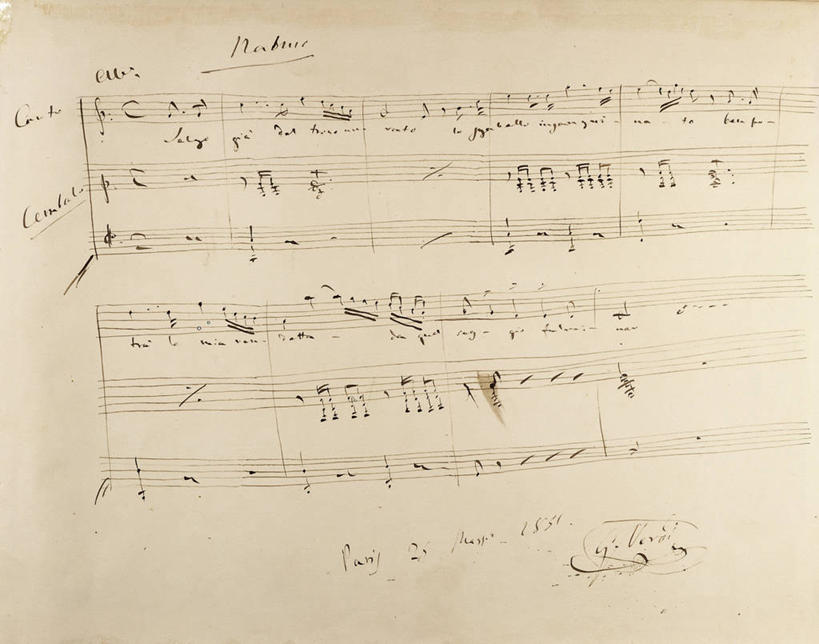 Nabuc
Canto
Salgo già del trono au- rato lo sgabello insangui- na- to ben po-
Cembalo
trà la mia ven- detta - da quel seg- gio fulmi- nar
Parigi 25
G. Verdi